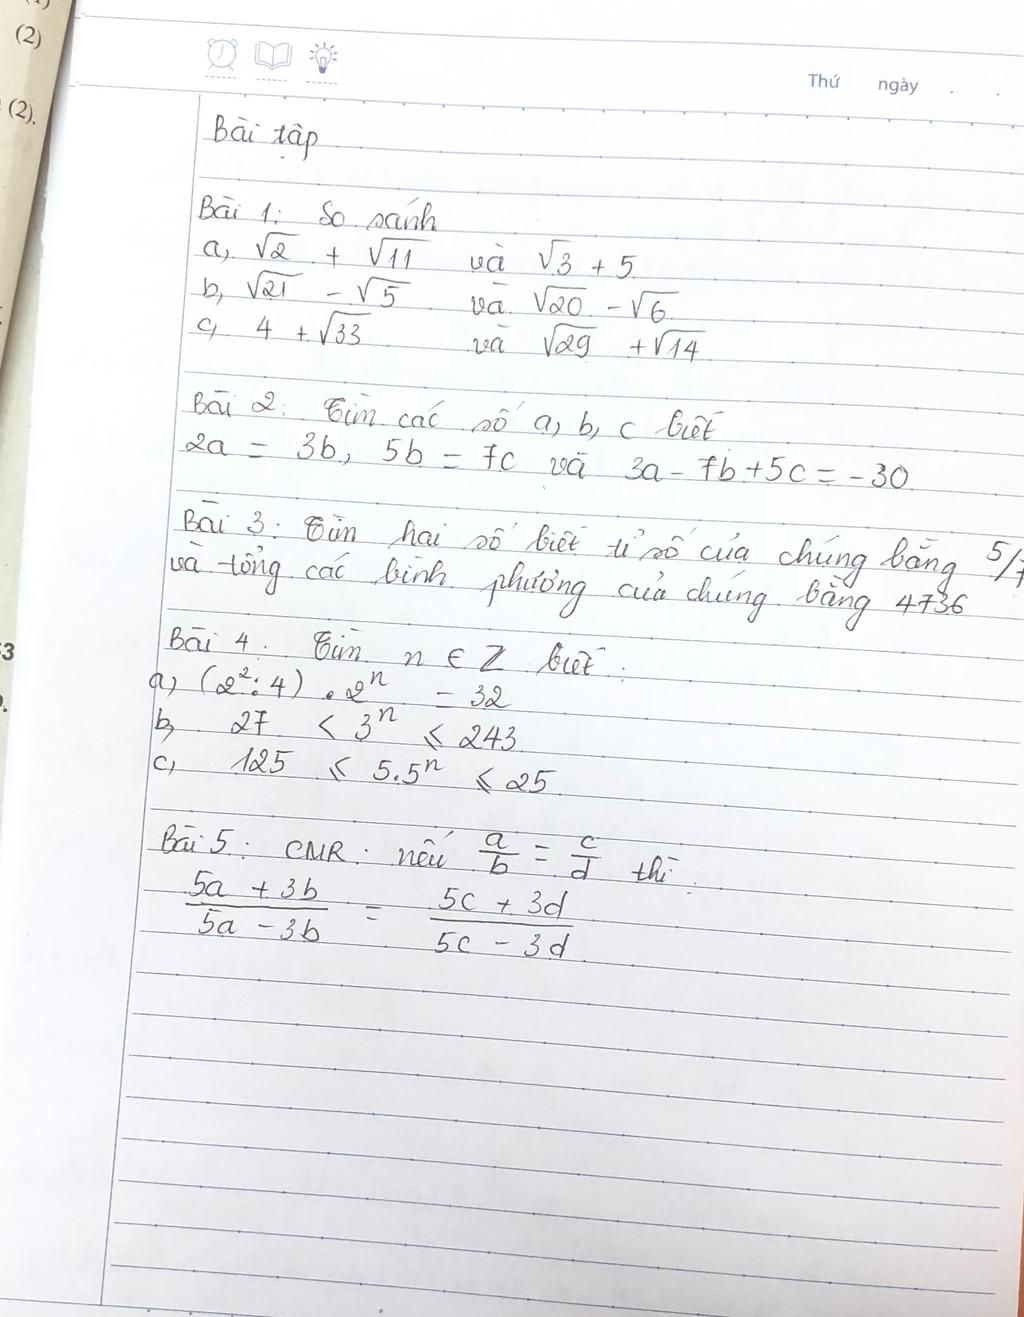 (2)
(2).
53
Thứ ngày . .
Bài tập
Bài 1: So sánh
a, √2 + √11 và √3 + 5
b, √21 - √5 và √20 - √6
c, 4 + √33 và √29 + √14
Bài 2: Tìm các số a, b, c biết
2a = 3b, 5b = 7c và 3a - 7b + 5c = -30
Bài 3: Tìm hai số biết tỉ số của chúng bằng 5/7
và tổng các bình phương của chúng bằng 4736
Bài 4: Tìm n ∈ Z biết:
a, (2²:4) . 2ⁿ = 32
b, 27 < 3ⁿ ⩽ 243
c, 125 ⩽ 5.5ⁿ ⩽ 25
Bài 5: CMR: nếu a/b = c/d thì:
(5a + 3b)/(5a - 3b) = (5c + 3d)/(5c - 3d)